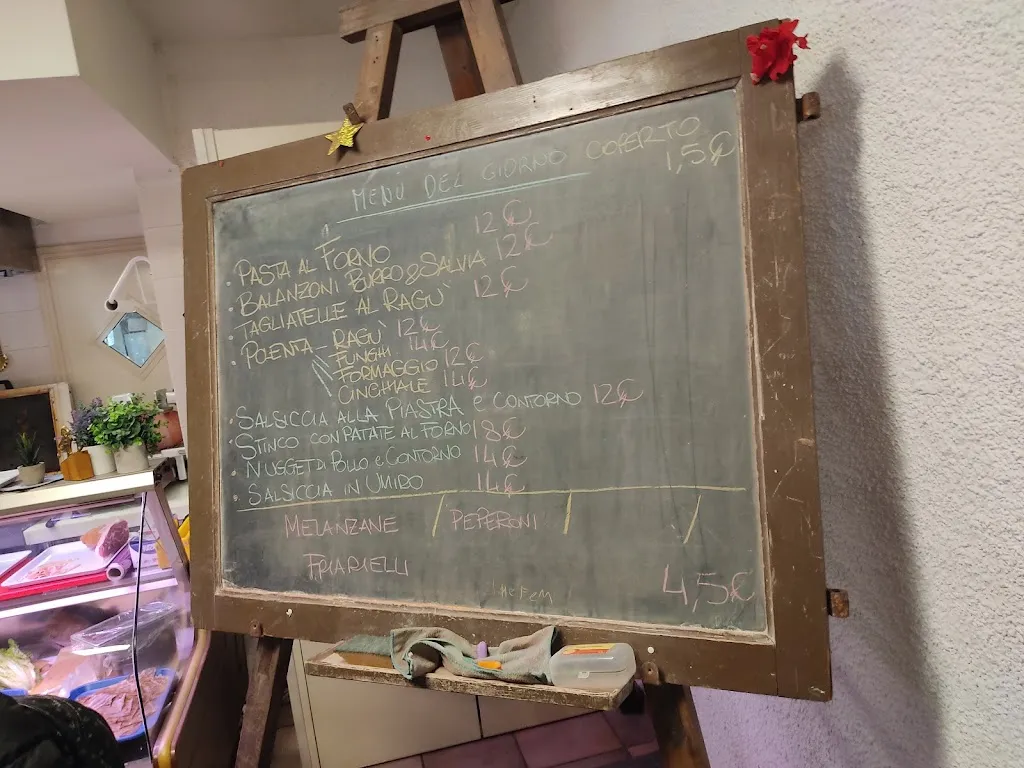 MENÙ DEL GIORNO COPERTO 1,5€
· PASTA AL FORNO 12€
· BALANZONI BURRO & SALVIA 12€
· TAGLIATELLE AL RAGÙ 12€
· POLENTA RAGÙ 12€
FUNGHI 14€
FORMAGGIO 12€
CINGHIALE 14€
· SALSICCIA ALLA PIASTRA E CONTORNO 12€
· STINCO CON PATATE AL FORNO 18€
· NUGGET DI POLLO E CONTORNO 14€
· SALSICCIA IN UMIDO 14€
MELANZANE / PEPERONI / /
FRIARIELLI
4,5€